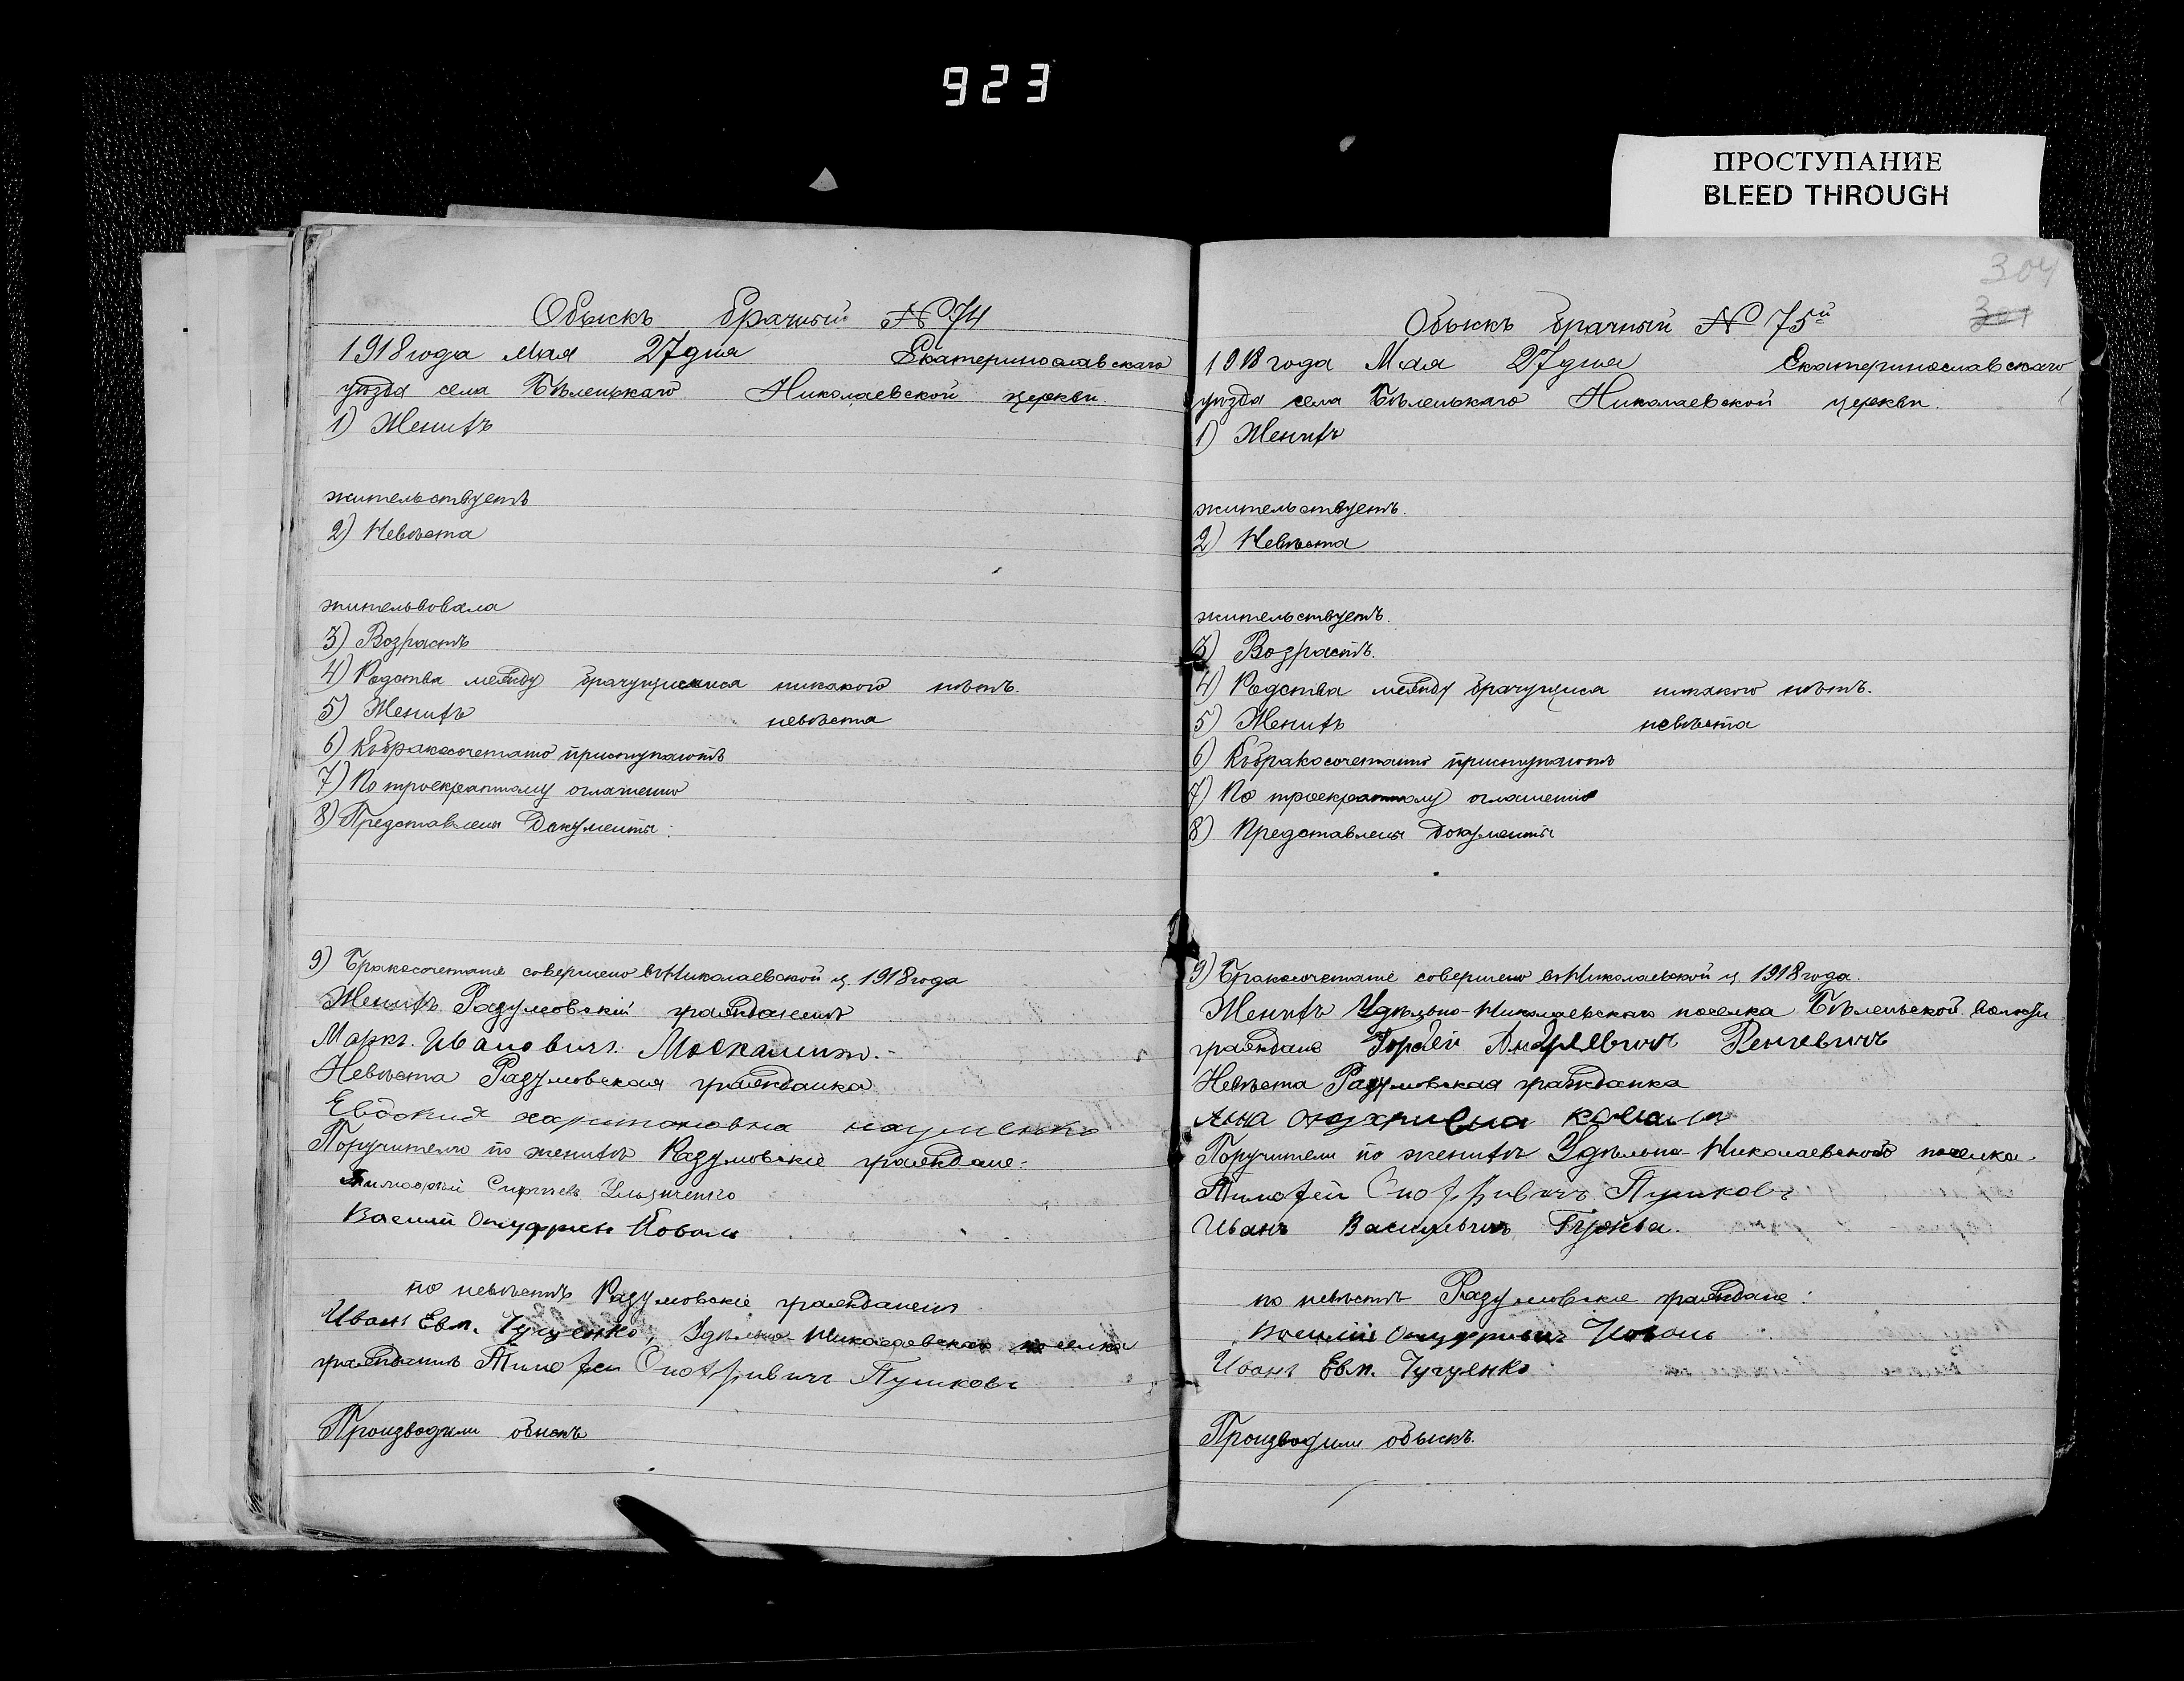 923
ПРОСТУПАНИЕ
BLEED THROUGH
Обыскъ брачный №74
1918 года Мая 27 дня Екатеринославскаго
уѣзда села Бѣленькаго Николаевской церкви.
1) Женихъ
жительствуетъ
2) Невѣста
жительствовала
3) Возрастъ
4) Родства между брачущимися никакого нѣтъ.
5) Женихъ невѣста
6) Къ бракосочетанію приступаютъ
7) По троекратному оглашенію
8) Представлены документы:
9) Бракосочетаніе совершено въ Николаевской ц. 1918 года
Женихъ Разумовскій гражданинъ
Маркъ Ивановичъ Москалишт.
Невѣста Разумовская гражданка
Евдокия харитоновна науменько
Поручители по женихѣ Разумовскіе граждане:
Тимофей Сергѣевъ
Василій Онуфріев Коваль
по невѣстѣ Разумовскіе гражданинъ
Иванъ Евм. Гуценко, Удѣльно-Николаевскаго поселка
гражданинъ Тимофей Пушковъ
Производили обыскъ
304
301
Обыскъ брачный №75й
1918 года Мая 27 дня Екатеринославскаго
уѣзда села Бѣленькаго Николаевской церкви.
1) Женихъ
жительствуетъ.
2) Невѣста
жительствуетъ.
3) Возрастъ.
4) Родства между брачущися никакого нѣтъ.
5) Женихъ невѣста
6) Къ бракосочетанію приступаютъ
7) По троекратному оглашенію
8) Представлены документы
9) Бракосочетаніе совершено въ Николаевской ц. 1918 года.
Женихъ Удѣльно-Николаевскаго поселка Бѣленьской волости
граждане Гордей Андреевичъ Ренчевичъ
Невѣста Разумовская гражданка
Анна коваль
Поручители по женихѣ Удѣльно-Николаевскаго поселка.
Тимофей Пушковъ
Иванъ Васильевичъ
по невѣстѣ Разумовскіе граждане:
Василій Онуфріевич Коваль
Иванъ Евм. Гуценко
Производили обыскъ.